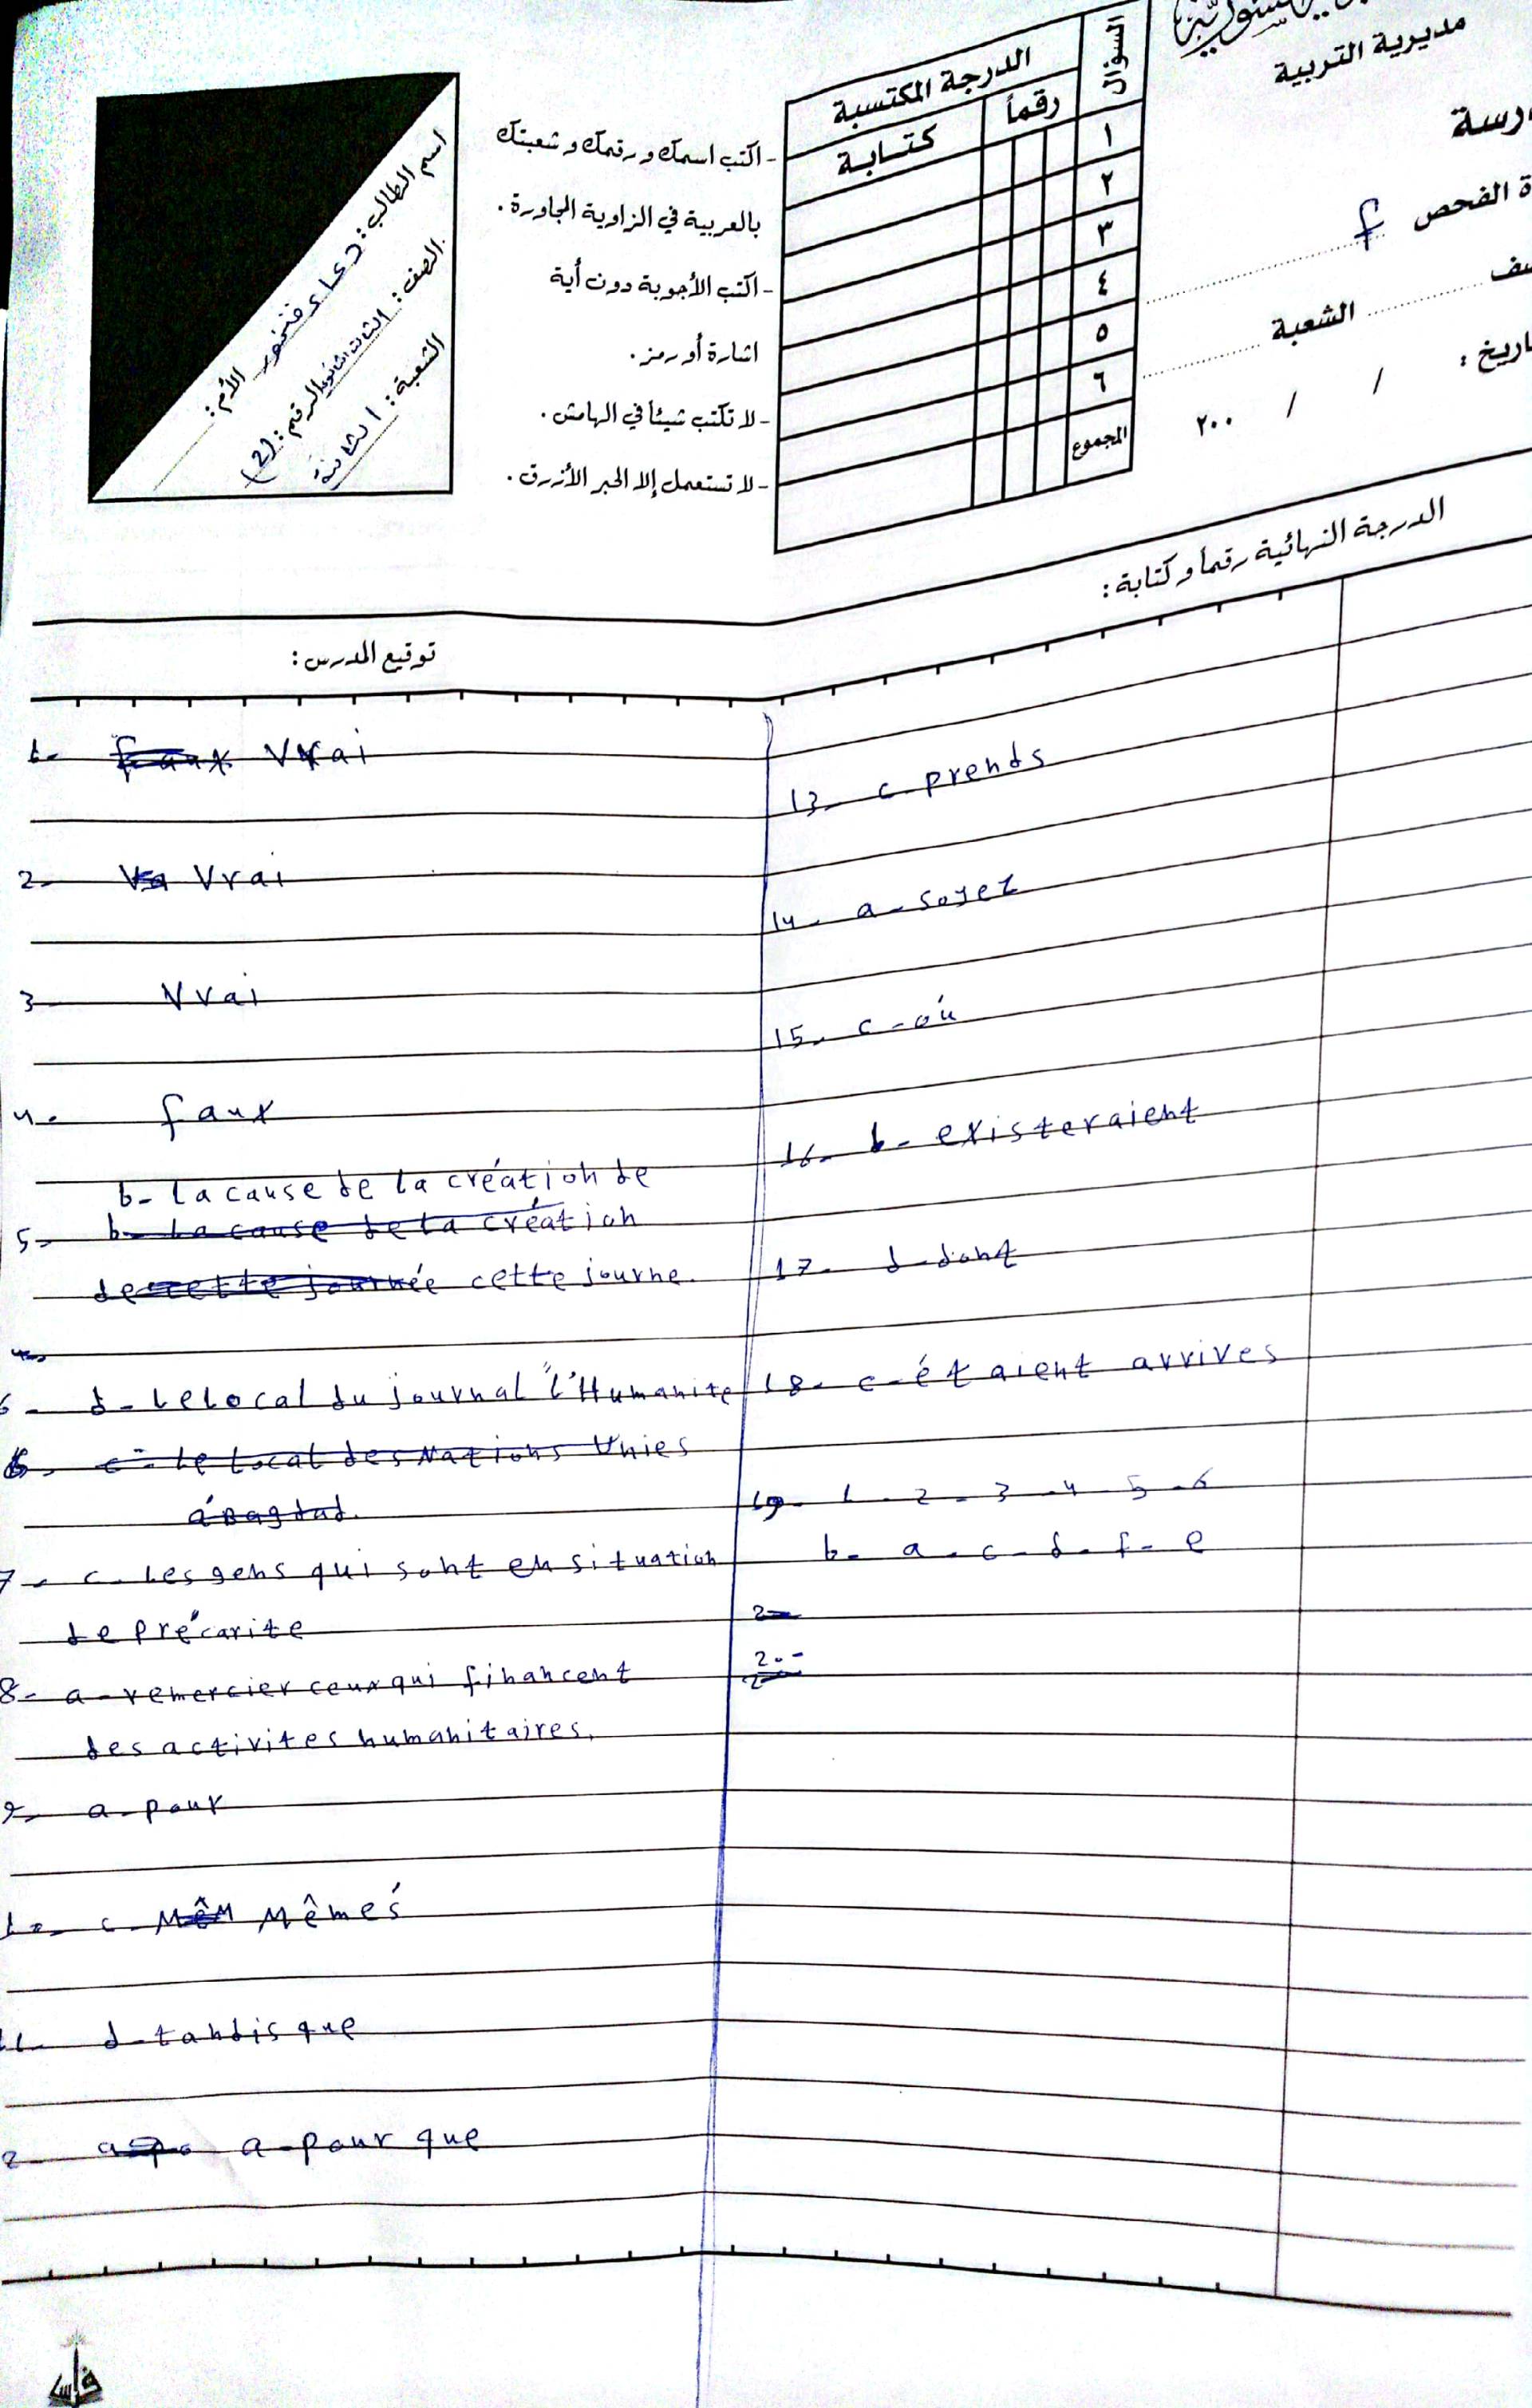 مديرية التربية
الفحص f
الشعبة
٢٠٠ / /
السؤال
الدرجة المكتسبة
رقماً
كتابة
١
٢
٣
٤
٥
٦
المجموع
- اكتب اسمك و رقمك و شعبتك
بالعربية في الزاوية المجاورة .
- اكتب الأجوبة دون أية
اشارة أو رمز .
- لا تكتب شيئاً في الهامش .
- لا تستعمل إلا الحبر الأزرق .
اسم الطالب :
الأم :
الصف : الثالث الثانوي الرقم : (2)
الشعبة : الثانية
الدرجة النهائية رقماً و كتابة :
توقيع المدرس :
1- faux Vrai
2- Vrai
3- Vrai
4- faux
b- La cause de la création de
5- b- La cause de la création
de cette journée cette journe
6- d- Le Local du journal "L'Humanite
6- c- Le Local des Nations Unies
á Bagdad.
7- c- Les gens qui sont en situation
de précarite
8- a- remercier ceux qui financent
des activites humanitaires.
9- a- pour
10- c- Mêm Mêmes
11- d- tandis que
2- a- pour que
13- c- prends
14- a- soyez
15- c- oú
16- b- existeraient
17- d- dont
18- c- étaient arrives
19- 1 - 2 - 3 - 4 - 5 - 6
b- a - c - d - f - e
2-
20-